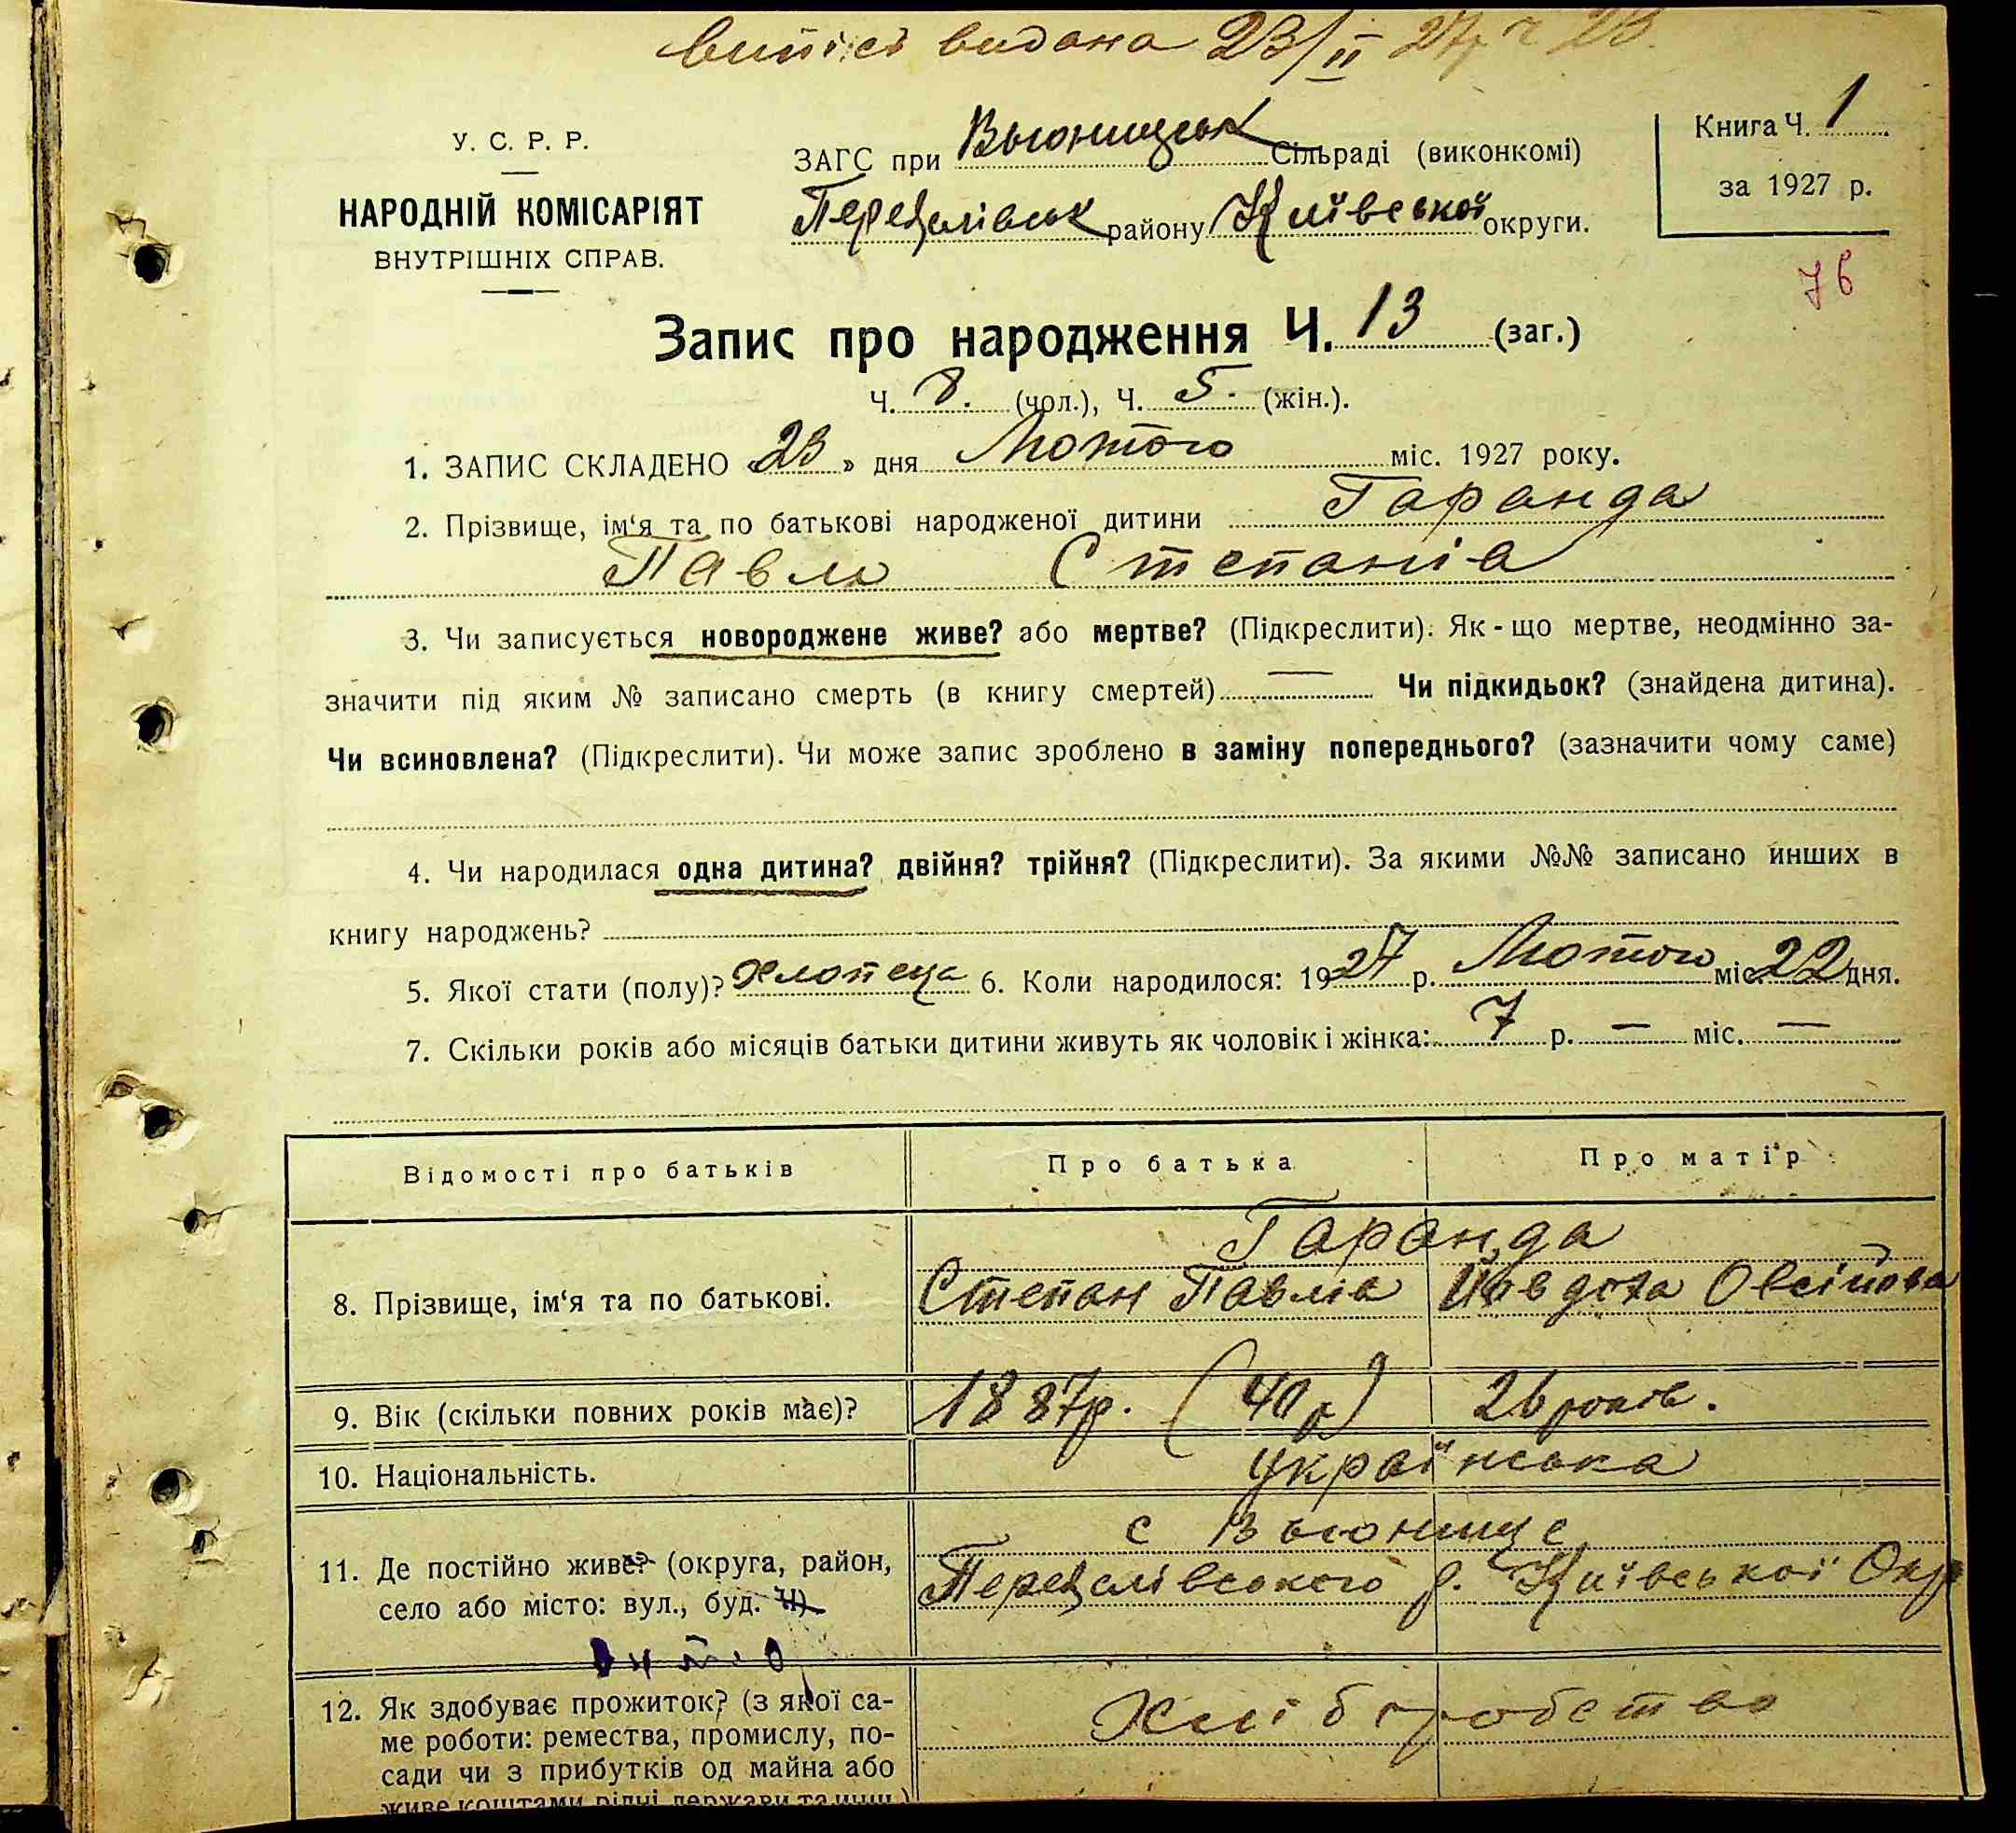 Випісь видана 23/II 27р Ч 23.
У. С. Р. Р.
НАРОДНІЙ КОМІСАРІЯТ
ВНУТРІШНІХ СПРАВ.
ЗАГС при Вьюницськ Сільраді (виконкомі)
Переяслівськ району Київської округи.
Книга Ч. 1
за 1927 р.
76
Запис про народження Ч. 13 (заг.)
Ч. 8. (чол.), Ч. 5. (жін.).
1. ЗАПИС СКЛАДЕНО «23» дня Лютого міс. 1927 року.
2. Прізвище, ім‘я та по батькові народженої дитини Гаранда
Павло Степанів
3. Чи записується новороджене живе? або мертве? (Підкреслити). Як-що мертве, неодмінно за-
значити під яким № записано смерть (в книгу смертей) — Чи підкидьок? (знайдена дитина).
Чи всиновлена? (Підкреслити). Чи може запис зроблено в заміну попереднього? (зазначити чому саме)
4. Чи народилася одна дитина? двійня? трійня? (Підкреслити). За якими №№ записано инших в
книгу народжень?
5. Якої стати (полу)? Хлопеця 6. Коли народилося: 1927 р. Лютого міс. 22 дня.
7. Скільки років або місяців батьки дитини живуть як чоловік і жінка: 7 р. — міс. —
Відомості про батьків Про батька Про матір
Гаранда
8. Прізвище, ім‘я та по батькові. Степан Павлів Овсійова
9. Вік (скільки повних років має)? 1887р. (40 р) 26 років.
10. Національність. українська
с Вьюнище
11. Де постійно живе? (округа, район, Переяслівського р. Київської Окр
село або місто: вул., буд. Ч).
12. Як здобуває прожиток? (з якої са- Хліборобство
ме роботи: ремества, промислу, по-
сади чи з прибутків од майна або
живе коштами рідні, держави та инш.)